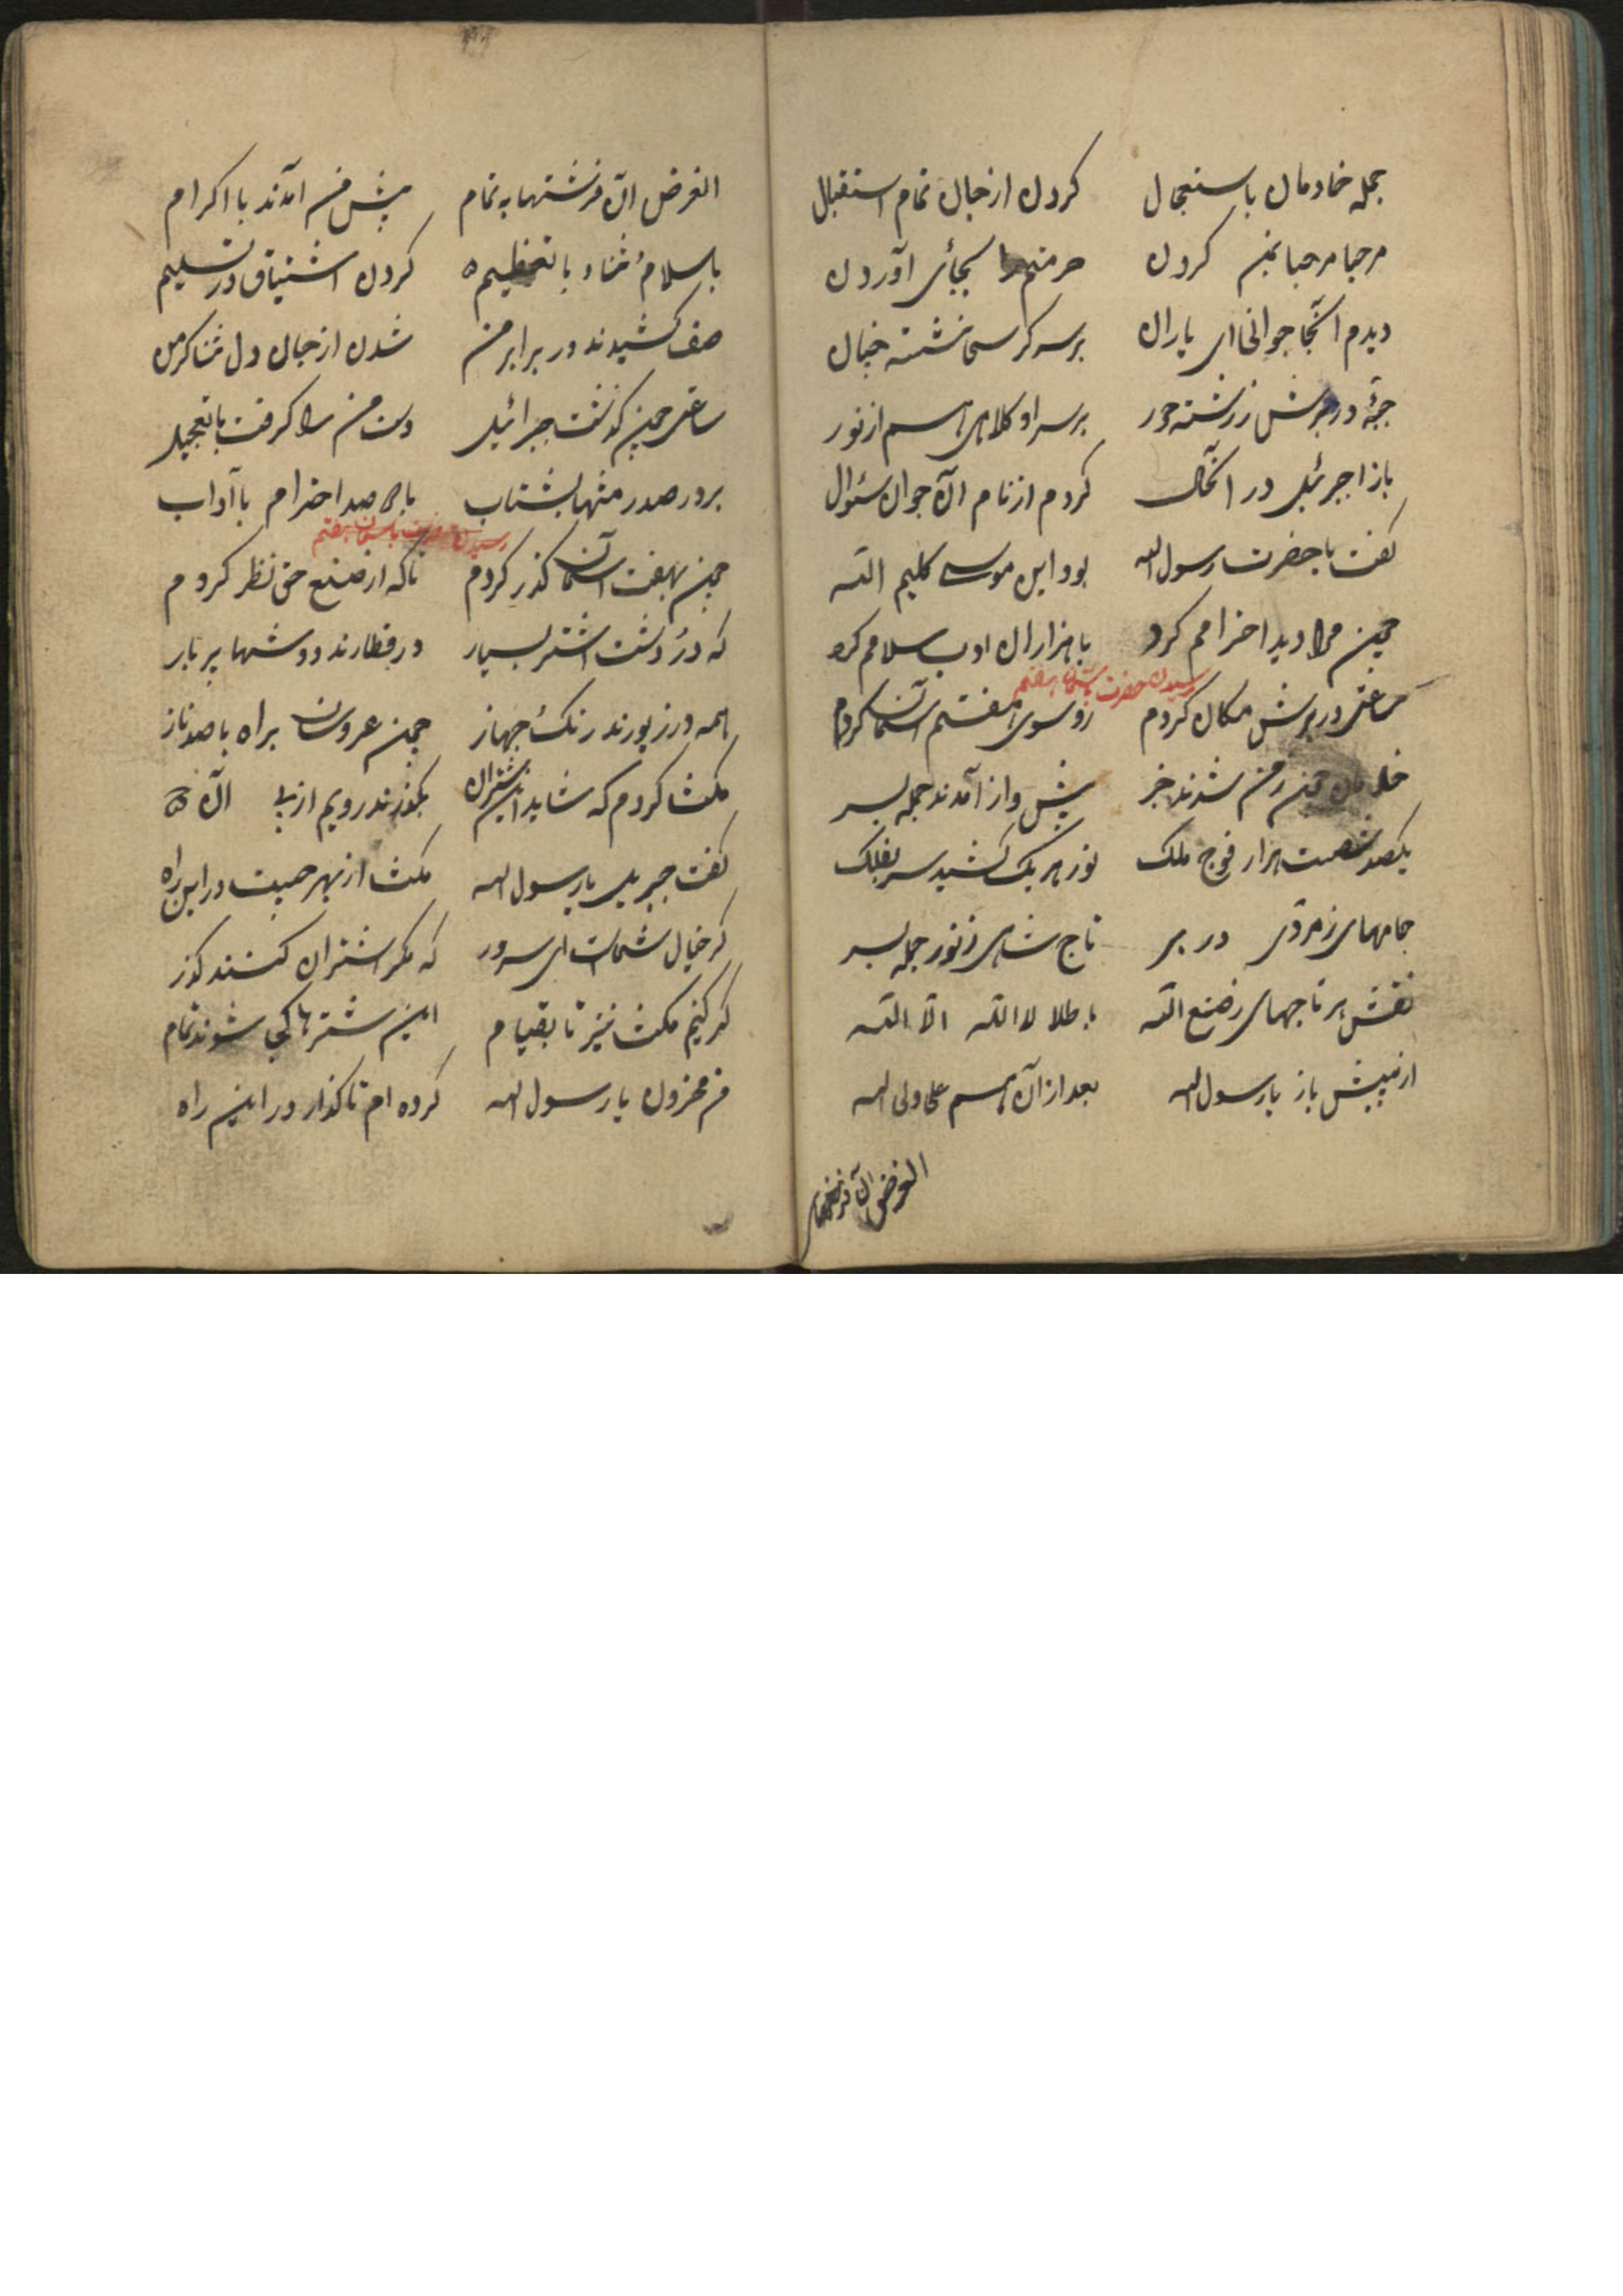 جمله خادمان باستعجال کردن از جان تمام استقبال
مرحبا مرحبا بمن کردن حرمتم را بجائی آوردن
دیدم آنجا جوانی ای یاران برسر کرسی نشسته چنان
جبۀ در برش ز رشته حور برسر او کلاهی هم از نور
باز از جبرئیل در آنحال کردم از نام آن جوان سئوال
گفت با حضرت رسول الله بود این موسی کلیم الله
چون مرا دید احترامم کرد با هزاران ادب سلامم کرد
رسیدن حضرت باسمان هفتم
ساعتی در برش مکان کردم رو سوی هفتم آسمان کردم
ز من شدند خبر پیش واز آمدند جمله بسر
یکصد شصت هزار فوج ملک نور هر یک کشید سر بفلک
جامهای زمردی در بر تاج شاهی ز نور جمله بسر
نقش بر تاجهای ز صنع الله با طلا لا اله الا الله
از پیش باز یا رسول الله بعد از آن هم علی ولی الله
الغرض آن فرشتهها
الغرض آن فرشتها به تمام پیش من آمدند با اکرام
با سلام ثناء با تعظیم کردن اشتیاق در تسلیم
صف کشیدند در برابر من شدن از جان دل ثنا گر من
ساعتی چون گذشت جبرائیل دست من را گرفت با تعجیل
برد در صدر منتها بشتاب با صد احترام با آداب
رسیدن حضرت باسمان هفتم
چون بهفت آسمان گذر کردم تا که از صنع حق نظر کردم
که در دشت اشتر بسیار در قطارند دوشها پر بار
همه در زیورند رنگ جهاز چون عروسان براه با صد ناز
مکث کردم که شاید این اشتران بگذرند رویم از پی آن
گفت جبریل یا رسول الله مکث از بهر چیست در این راه
گر خیال شماست ای سرور که مگر اشتران کنند گذر
گر کنیم مکث نیز تا بقیام این شترها کی شوند تمام
من محزون یا رسول الله کرده ام تا گذار در این راه